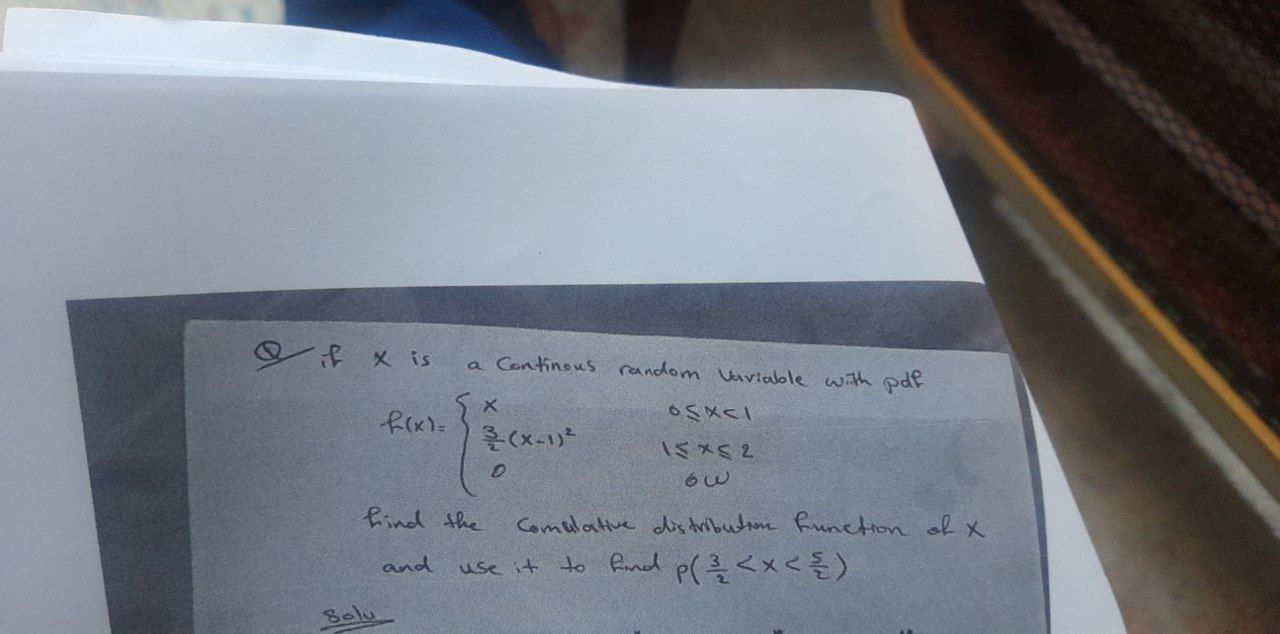 Q if X is a Continous random Variable with pdf
f(x)= { x 0≤x<1
3/2 (x-1)² 1≤x≤2
0 ow
find the Comulative distribution function of X
and use it to find p(3/2 < x < 5/2)
Solu